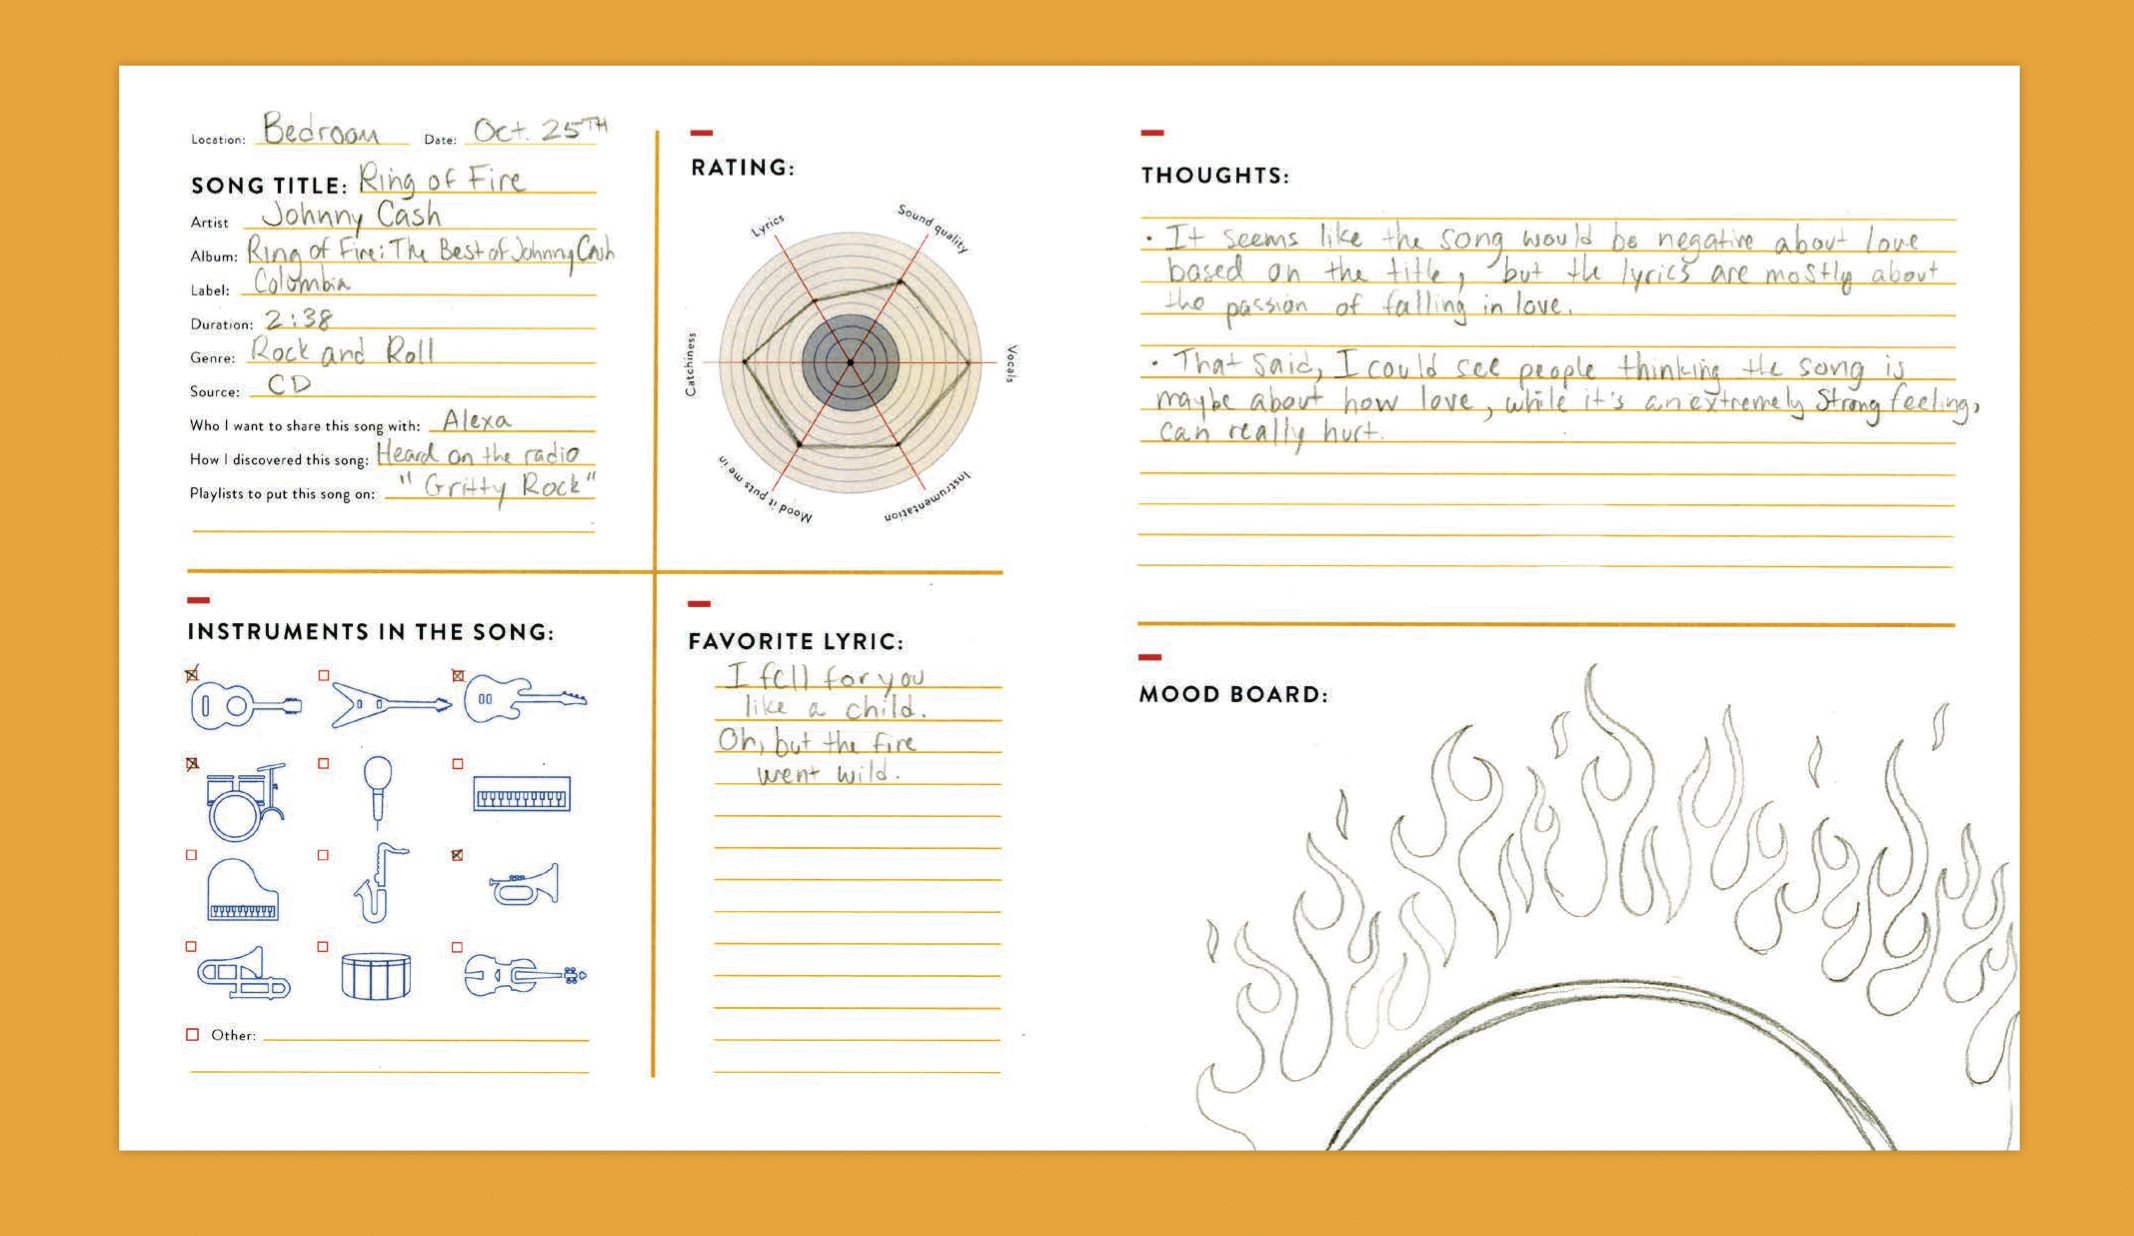 Location: Bedroom Date: Oct. 25TH
SONG TITLE: Ring of Fire
Artist Johnny Cash
Album: Ring of Fire: The Best of Johnny Cash
Label: Colombia
Duration: 2:38
Genre: Rock and Roll
Source: CD
Who I want to share this song with: Alexa
How I discovered this song: Heard on the radio
Playlists to put this song on: "Gritty Rock"
RATING:
Lyrics
Sound quality
Catchiness
Vocals
Mood it puts me in
Instrumentation
INSTRUMENTS IN THE SONG:
Other:
FAVORITE LYRIC:
I fell for you
like a child.
Oh, but the fire
went wild.
THOUGHTS:
· It seems like the song would be negative about love
based on the title, but the lyrics are mostly about
the passion of falling in love.
· That said, I could see people thinking the song is
maybe about how love, while it's an extremely strong feeling,
can really hurt.
MOOD BOARD: